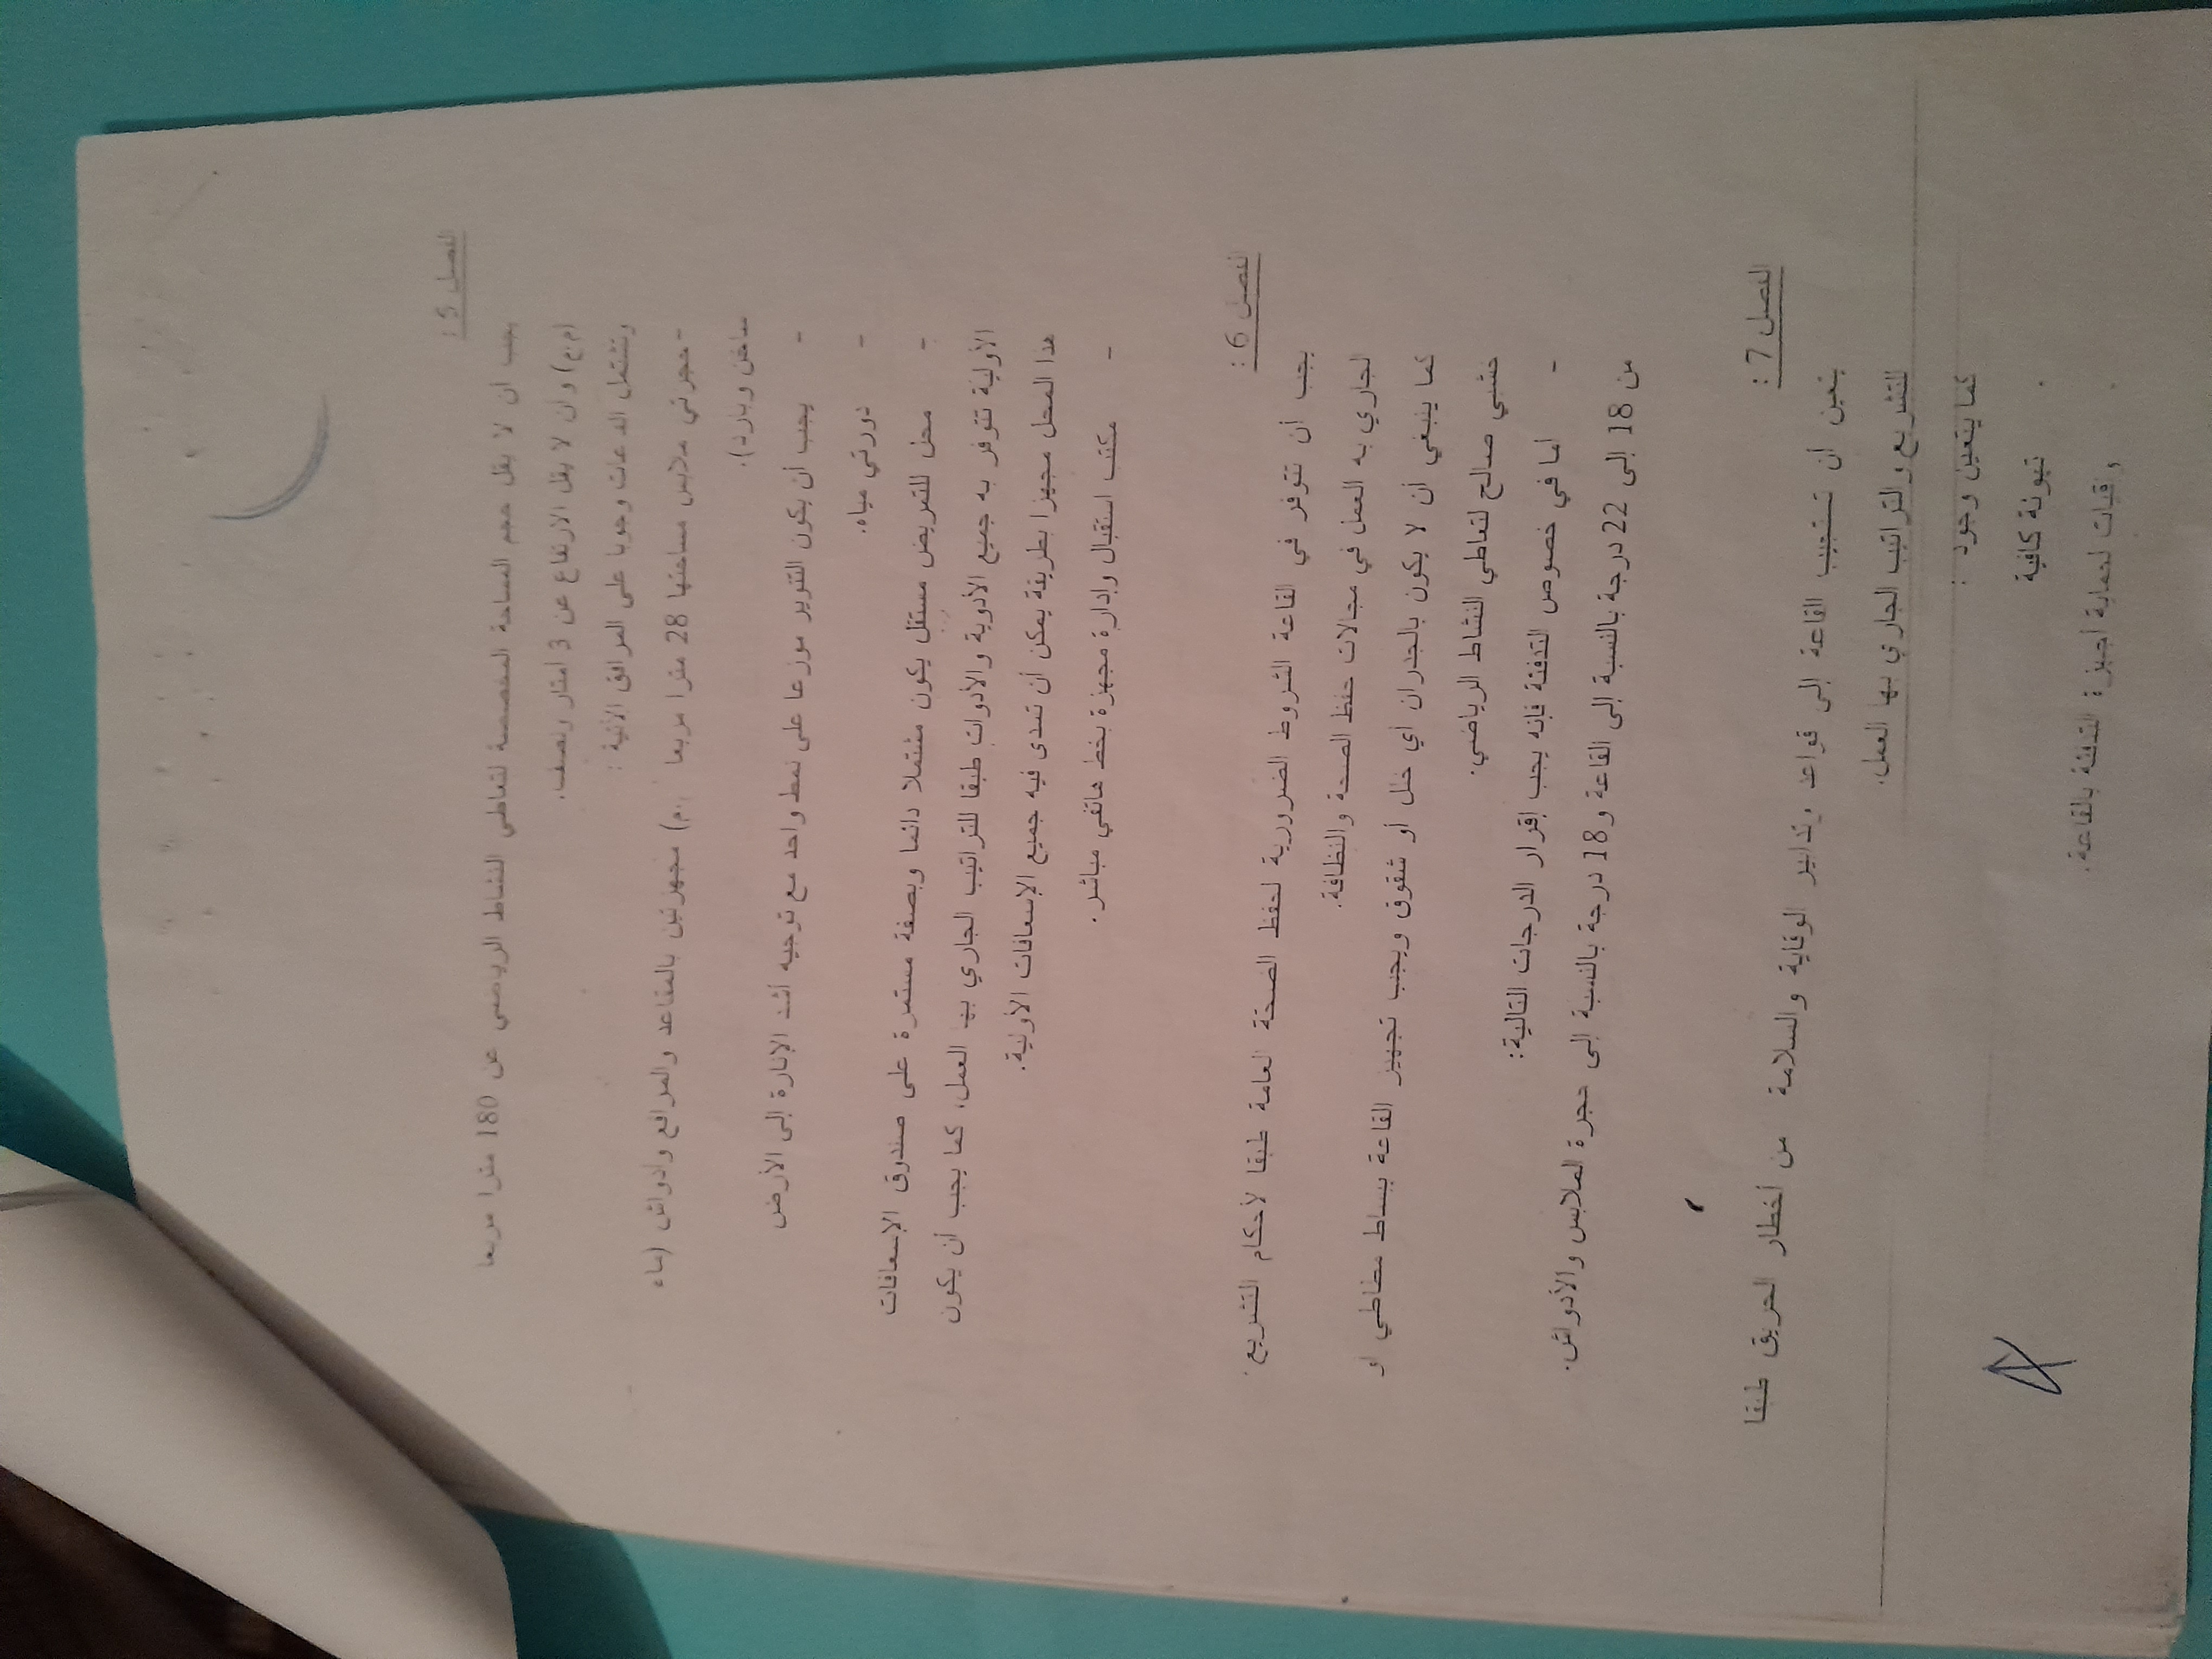 الفصل 5 :
يجب أن لا يقل حجم المساحة المخصصة لتعاطي النشاط الرياضي عن 180 مترا مربعا
(م.ع) وأن لا يقل الارتفاع عن 3 أمتار ونصف.
وتشتمل القاعات وجوبا على المرافق الآتية :
- حجرتي ملابس مساحتها 28 مترا مربعا م) مجهزتين بالمقاعد والمرافع وادواش (ماء
ساخن وبارد).
- يجب أن يكون التنوير موزعا على نمط واحد مع توجيه أشد الإنارة إلى الأرض
- دورتي مياه.
- محل للتمريض مستقل يكون مشتملا دائما وبصفة مستمرة على صندوق الإسعافات
الأولية تتوفر به جميع الأدوية والأدوات طبقا للتراتيب الجاري بها العمل، كما يجب أن يكون
هذا المحل مجهزا بطريقة يمكن أن تسدى فيه جميع الإسعافات الأولية.
- مكتب استقبال وإدارة مجهزة بخط هاتفي مباشر.
الفصل 6 :
يجب أن تتوفر في القاعة الشروط الضرورية لحفظ الصحة العامة طبقا لأحكام التشريع
الجاري به العمل في مجالات حفظ الصحة والنظافة.
كما ينبغي أن لا يكون بالجدران أي خلل أو شقوق ويجب تجهيز القاعة ببساط مطاطي او
خشبي صالح لتعاطي النشاط الرياضي.
- أما في خصوص التدفئة فإنه يجب إقرار الدرجات التالية:
من 18 إلى 22 درجة بالنسبة إلى القاعة و 18 درجة بالنسبة إلى حجرة الملابس والأدواش.
الفصل 7 :
يتعين أن تستجيب القاعة إلى قواعد وتدابير الوقاية والسلامة من أخطار الحريق طبقا
للتشريع والتراتيب الجاري بها العمل.
كما يتعين وجود :
. تهوئة كافية
. واقيات لحماية أجهزة التدفئة بالقاعة.